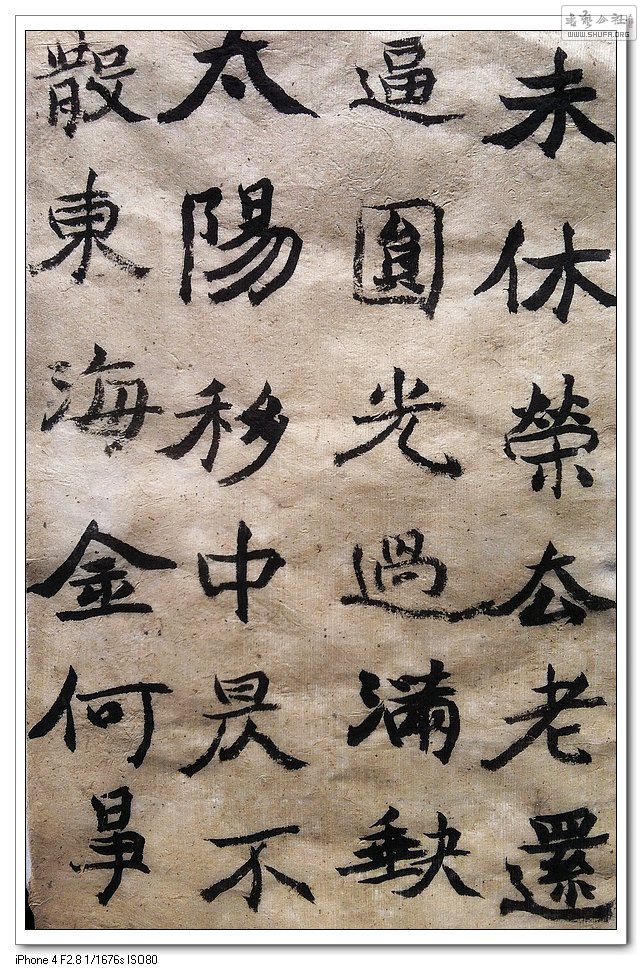 未休榮去老還
逼圓光過滿缺
太陽移中昃不
散東海金何事
书艺公社
WWW.SHUFA.ORG
iPhone 4 F2.8 1/1676s ISO80